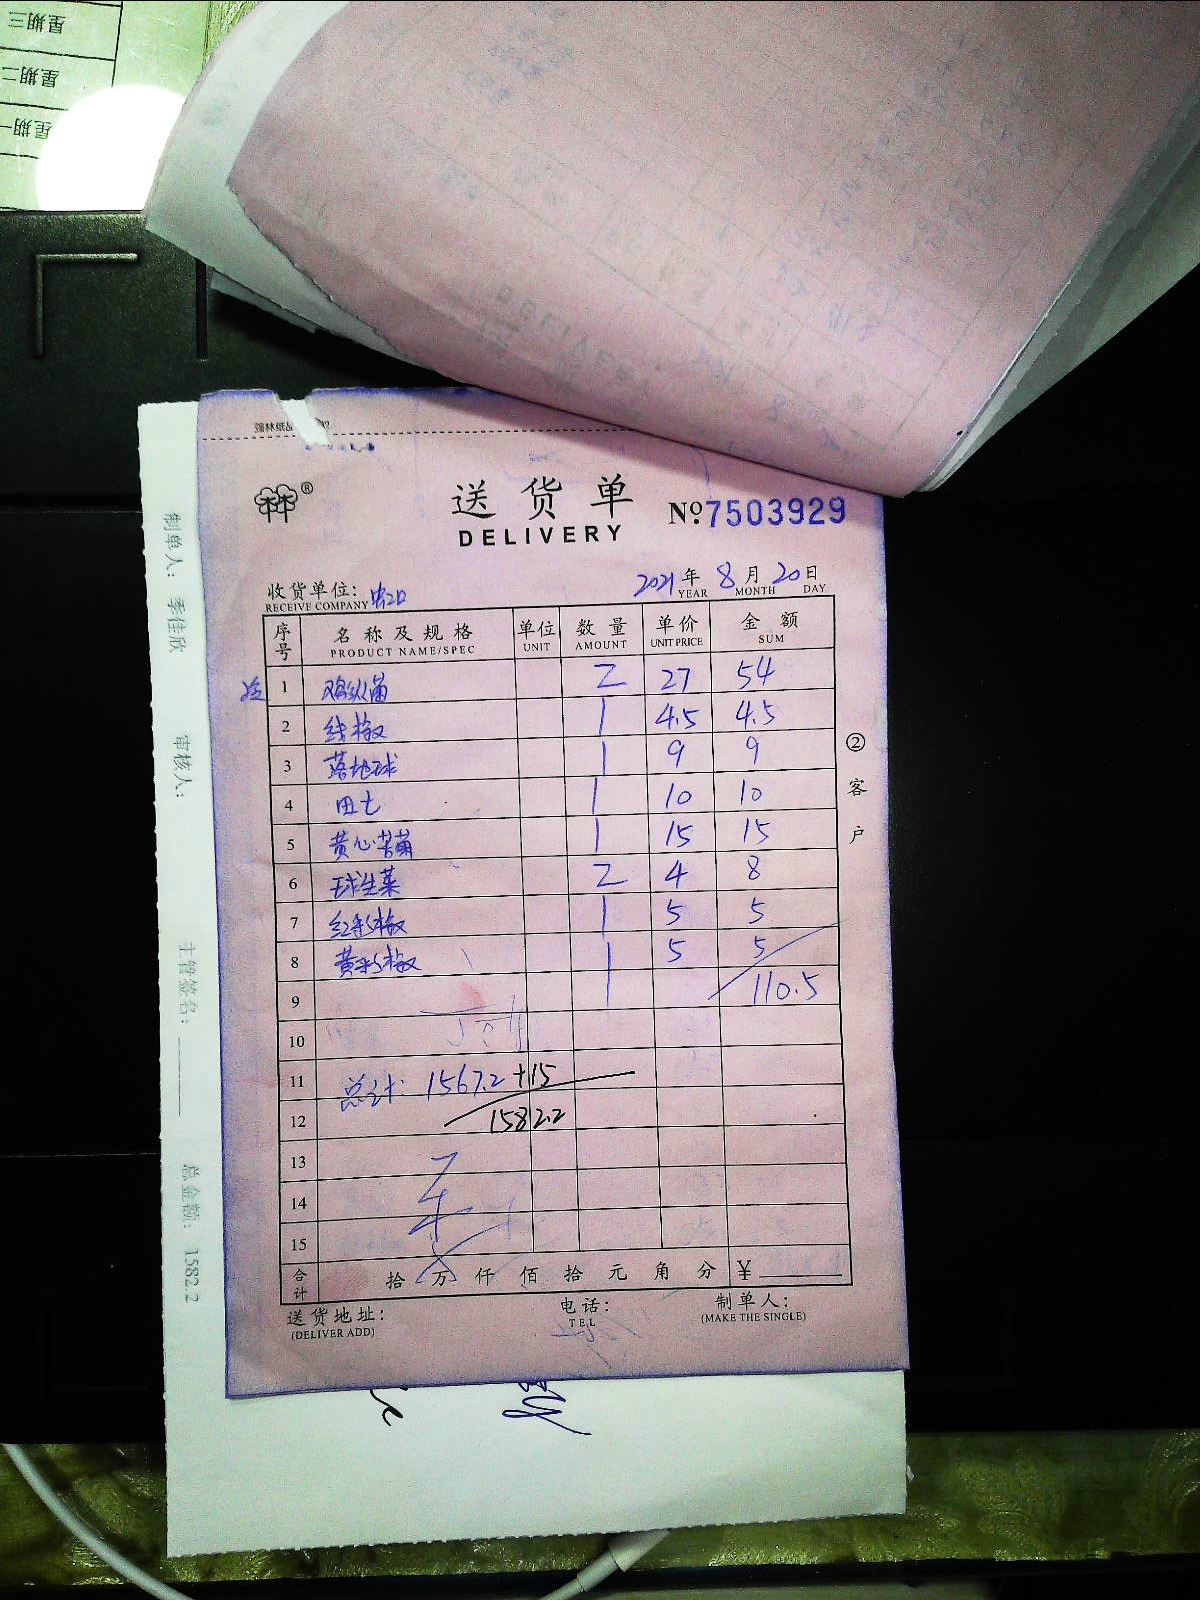 星期三
星期二
星期一
送货单
DELIVERY
№.7503929
收货单位:
RECEIVE COMPANY
2021年 8月 20日
YEAR MONTH DAY
序号 名称及规格 单位 数量 单价 金额
PRODUCT NAME/SPEC UNIT AMOUNT UNIT PRICE SUM
1 鸡纵菌 2 27 54
2 线椒 1 4.5 4.5
3 落地球 1 9 9
4 田七 1 10 10
5 黄心苦菊 1 15 15
6 球生菜 2 4 8
7 红彩椒 1 5 5
8 黄彩椒 1 5 5
9 1 110.5
10
11 总计: 1567.2+15
12 1582.2
13
14
15
合计 拾 万 仟 佰 拾 元 角 分 ¥
送货地址:
(DELIVER ADD)
电话:
TEL
制单人:
(MAKE THE SINGLE)
②客户
制单人: 季佳欣
审核人:
主管签名:
总金额: 1582.2